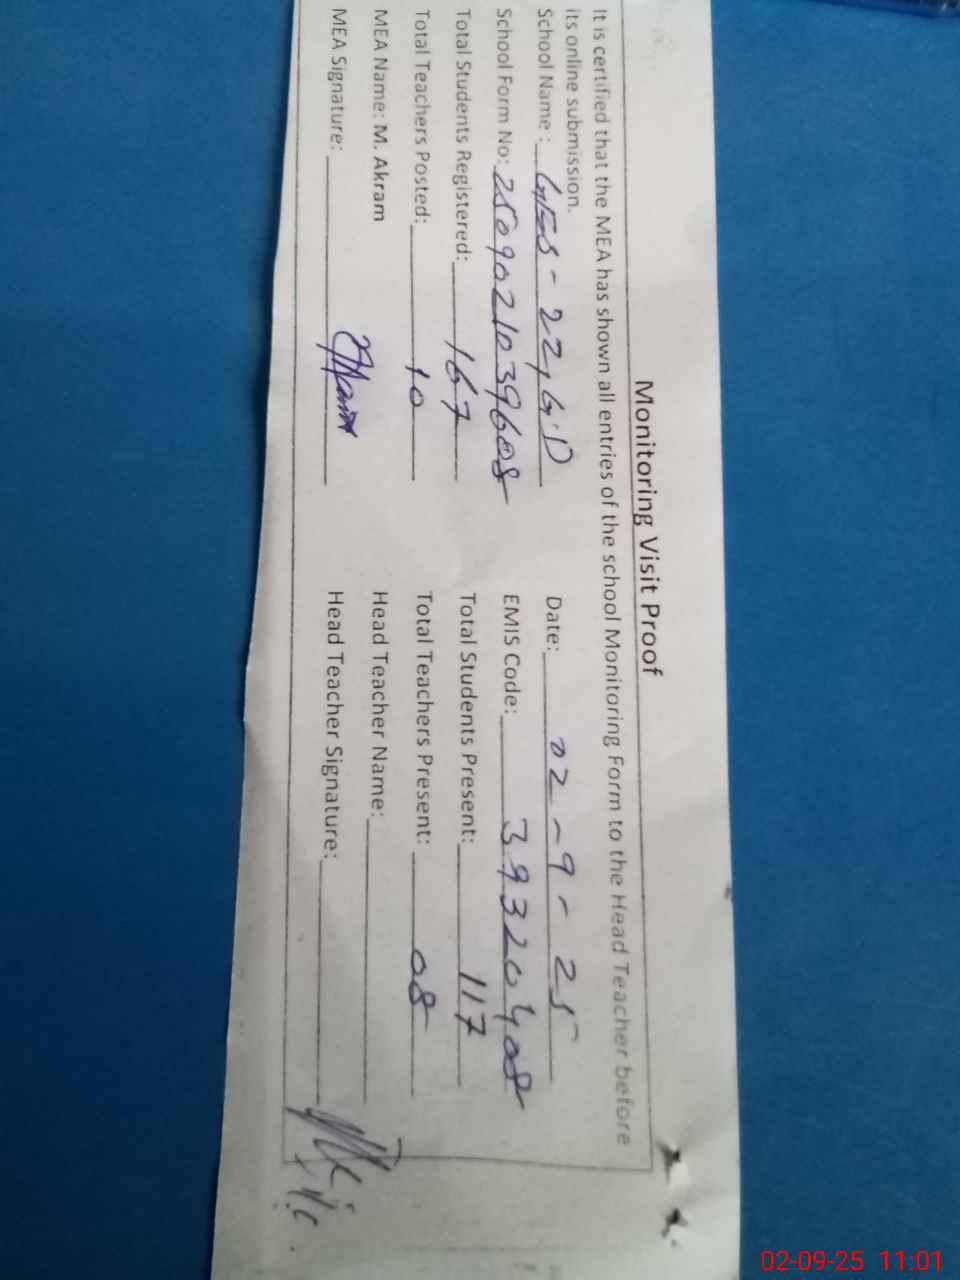 Monitoring Visit Proof
It is certified that the MEA has shown all entries of the school Monitoring Form to the Head Teacher before
its online submission.
School Name : GES - 22, G.D Date: 02 - 9 - 25
School Form No: 2509021039608 EMIS Code: 39320408
Total Students Registered: 167 Total Students Present: 117
Total Teachers Posted: 10 Total Teachers Present: 08
MEA Name: M. Akram Head Teacher Name:
MEA Signature: Head Teacher Signature:
02-09-25 11:01